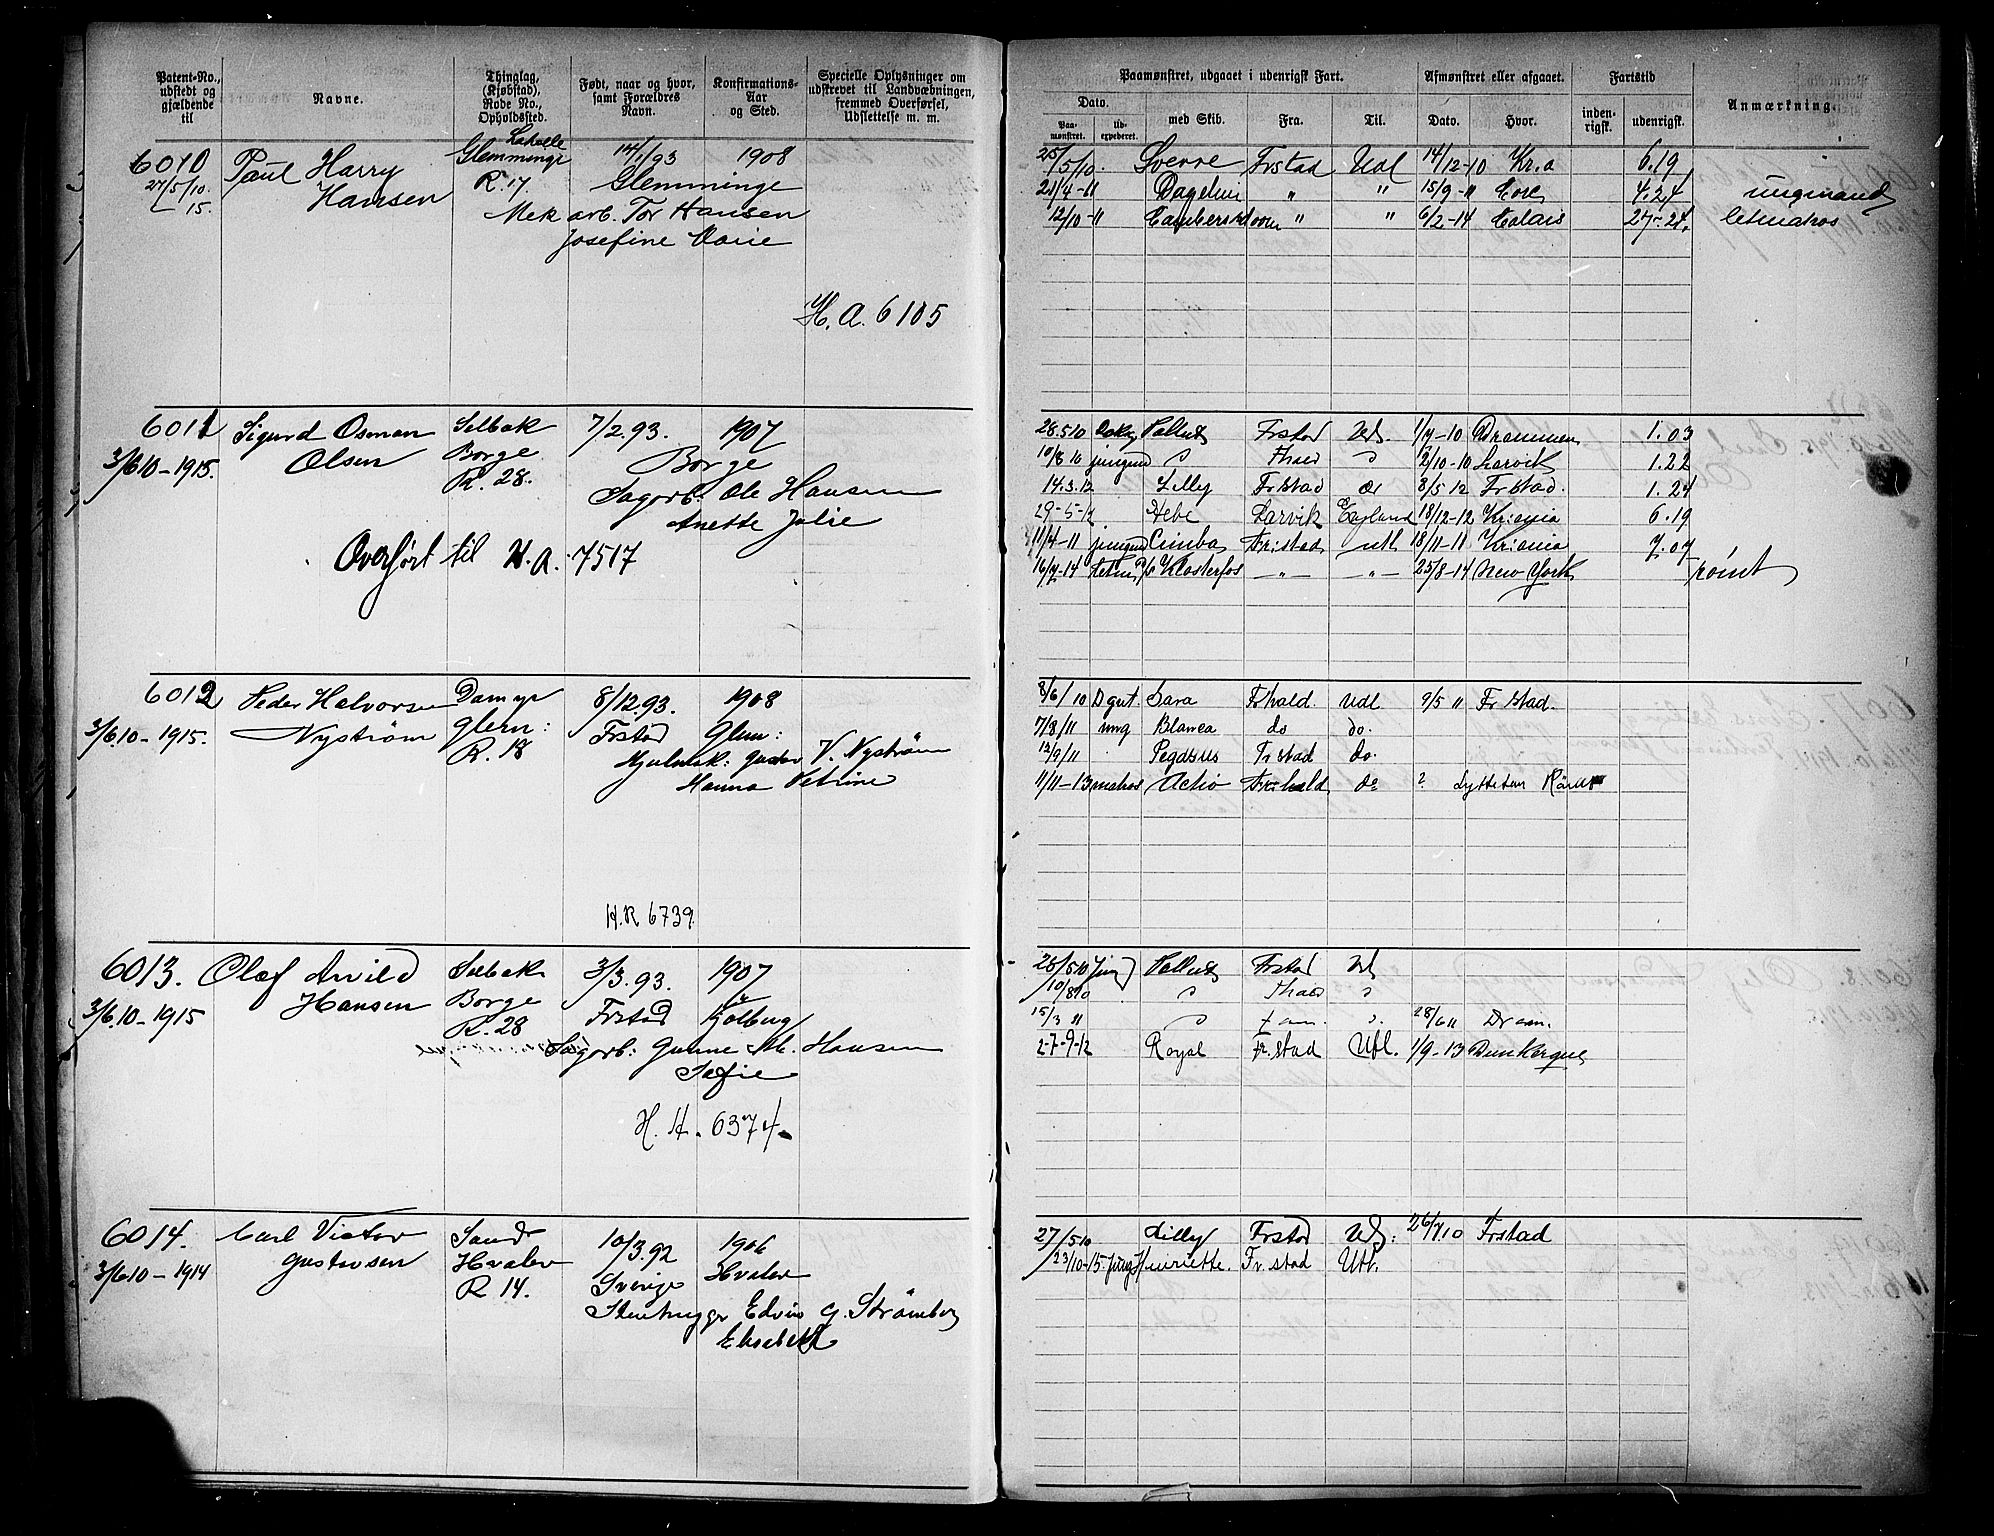 Patent-No., udstedt og gjældende til
Navne.
Thinglag, (Kjøbstad), Rode No., Opholdssted.
Født, naar og hvor, samt Forældres Navn.
Konfirmations-Aar og Sted.
Specielle Oplysninger om udskrevet til Landvæbningen, fremmed Overførsel, Udslettelse m. m.
Paamønstret, udgaaet i udenrigsk Fart.
Dato.
Paamønstret.
Udexpederet.
med Skib.
Fra.
Til.
Afmønstret eller afgaaet.
Dato.
Hvor.
Fartstid
indenrigsk.
udenrigsk.
Anmærkning.
6010 Paul Harry Glemminge 14/1 93 1908
27/5/10. Hansen R. 17. Glemminge
15. Mek arb. Tor Hansen
Josefine Marie
H. A. 6105
25/5/10. Sverre Frstad Udl 14/12-10 Kr.a 6.19
21/4-11 " " 15/9-11 4.24 ungmand
12/10-11 " " 6/2-14 Calais 27-24. letmatros
6011 Sigurd Osman Selbak 7/2.93. 1907
3/6.10-1915. Olsen Borge Borge
R. 28. Sagarb: Ole Hansen
Anette Julie
Overført til H.A. 7517
28.5.10 Pallas Frstad Udl. 1/7-10 Drammen 1.03
10/8 10 jungmd 2/10-10 Larvik 1.22
14.3.12 Lilly Frstad 8/5 12 Frstad. 1.24
29-5-12 Hebe Larvik England 18/12-12 Kriania 6.19
11/4-11 jungmd Cimba Frstad utl 18/11-11 Kriania 7.07
16/7-14 Klosterfos -"- -"- 25/8-14 New York rømt
6012 Peder Halvorsen Damyr 8/12.93. 1908
3/6.10-1915. Nystrøm Glem: Frstad Glem:
R. 18 Hjulmak: Gustav V. Nystrøm
Hanna Petrine
H.R 6739
8/6/10 Dgut. Sara Frhald. Udl 9/5 11 Fr stad.
7/8/11 ung Blanca do do.
12/9/11 Pegasus Frstad do.
11/11-13 matros Actio Frhald do ? Lyttelton Rømt
6013. Olaf Arvild Selbak 3/3.93. 1907
3/6.10-1915 Hansen Borge Frstad Kjølberg
R. 28 Sagarb: Gunne M. Hansen
Sofie
H. H. 6374.
28/5 10 Jung Pallas Frstad Udl
10/8 10
15/3 11 28/6 11 Dram.
2-7-9-12 Royal Fr.stad Utl. 1/9-13 Dunkerque
6014. Carl Victor Sand 10/3.92 1906
3/6.10-1914 Gustavsen Hvaler Sverige Hvaler
R 14. Stenhugger Edvin G. Strømberg
Elisabeth
27/5 10 Lilly Frstad Udl. 26/7 10 Frstad
23/10-15 Jung Henriette. Fr.stad Utl.